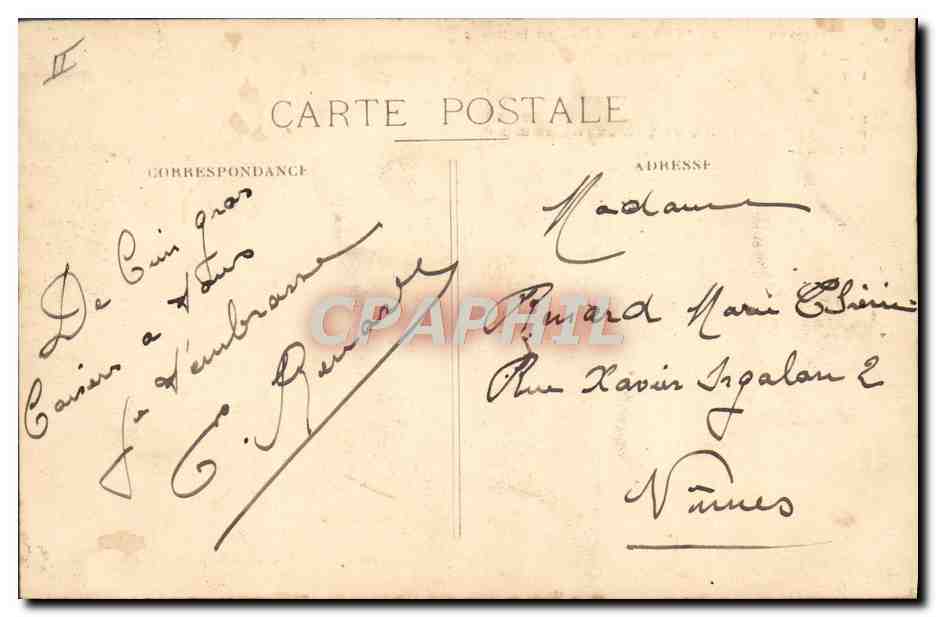 II
CARTE POSTALE
CORRESPONDANCE
De Cin gros
Caisers a tous
Je t'embrasse
ADRESSE
Madame
Marie
Rue Xavier Sigalon 2
Nîmes
CPAPHIL